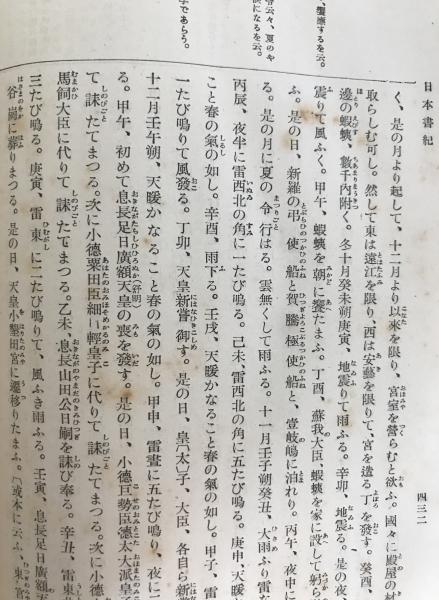 日本書紀
四三二
答云々、夏のや
になるを云。
饗應するを云。
字であらう。
く、是の月より起して、十二月より以來を限り、宮室を營らむと欲ふ。國々に殿屋の材
取らしむ可し。然して東は遠江を限り、西は安藝を限りて、宮を造る丁を發す。癸酉、
邊の蝦蛦、數千内附く。冬十月癸未朔庚寅、地震りて雨ふる。辛卯、地震る。是の夜
震りて風ふく。甲午、蝦蛦を朝に饗たまふ。丁酉、蘇我大臣、蝦蛦を家に設して躬ら
ふ。是の日、新羅の弔使船と賀騰極使船と、壹岐嶋に泊れり。丙午、夜中に
る。是の月に夏の令行はる。雲無くして雨ふる。十一月壬子朔癸丑、大雨ふり雷
丙辰、夜半に雷西北の角に一たび鳴る。己未、雷西北の角に五たび鳴る。庚申、天暖
こと春の氣の如し。辛酉、雨下る。壬戌、天暖かなること春の氣の如し。甲子、雷
一たび鳴りて風發る。丁卯、天皇新嘗御す。是の日、皇〔太〕子、大臣、各自ら新
十二月壬午朔、天暖かなること春の氣の如し。甲申、雷晝に五たび鳴り、夜に二
る。甲午、初めて息長足日廣額天皇の喪を發す。是の日、小德巨勢臣德太大派皇
て誄たてまつる。次に小德粟田臣細目輕皇子に代りて誄たてまつる。次に小德
馬飼大臣に代りて誄たてまつる。乙未、息長山田公日嗣を誄び奉る。辛丑、雷東北
三たび鳴る。庚寅、雷東に二たび鳴りて、風ふき雨ふる。壬寅、息長足日廣額天
谷崗に葬りまつる。是の日、天皇小墾田宮に遷移りたまふ。〔或本に云ふ、東宮